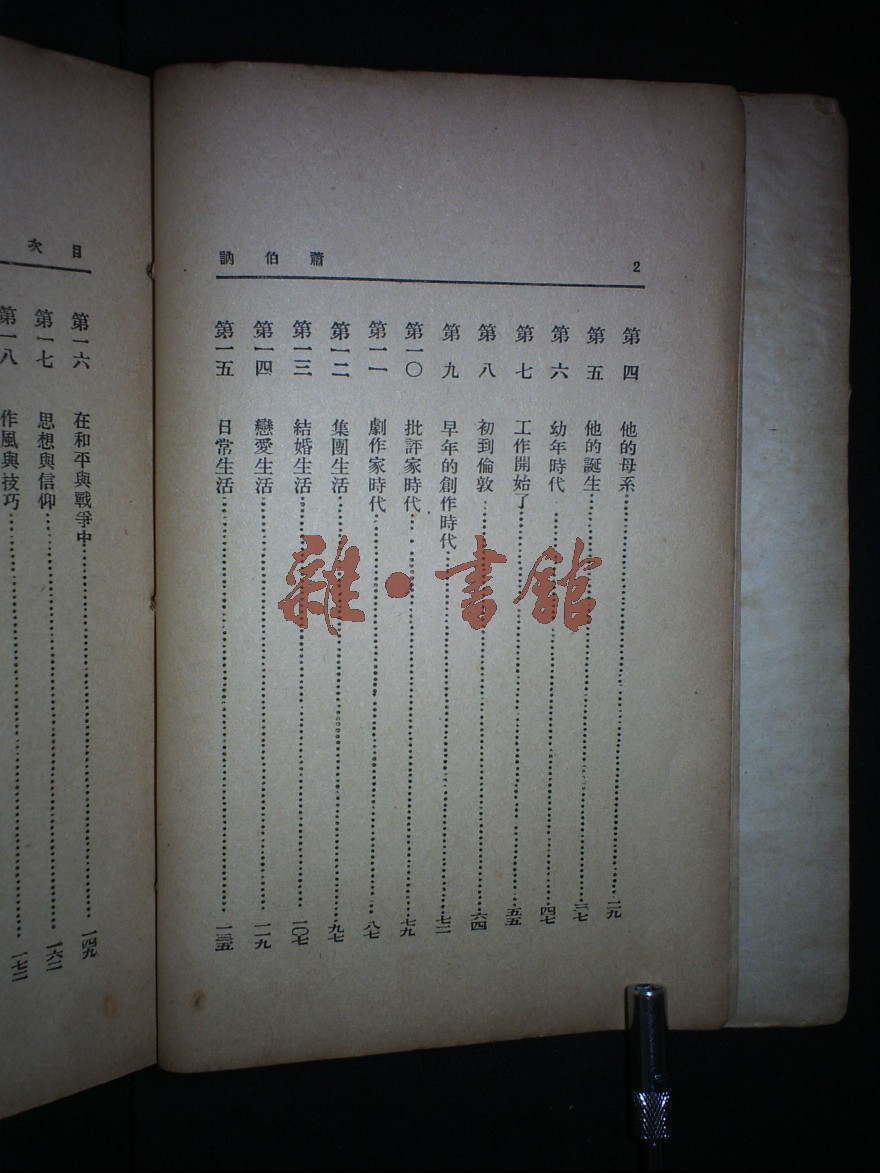 2
蕭伯訥
第四 他的母系……二九
第五 他的誕生……三七
第六 幼年時代……四七
第七 工作開始了……五五
第八 初到倫敦……六四
第九 早年的創作時代……七二
第一〇 批評家時代……七九
第一一 劇作家時代……八七
第一二 集團生活……九七
第一三 結婚生活……一〇七
第一四 戀愛生活……一一九
第一五 日常生活……一三五
目次
第一六 在和平與戰爭中……一四九
第一七 思想與信仰……一六二
第一八 作風與技巧……一七二
雜·書館